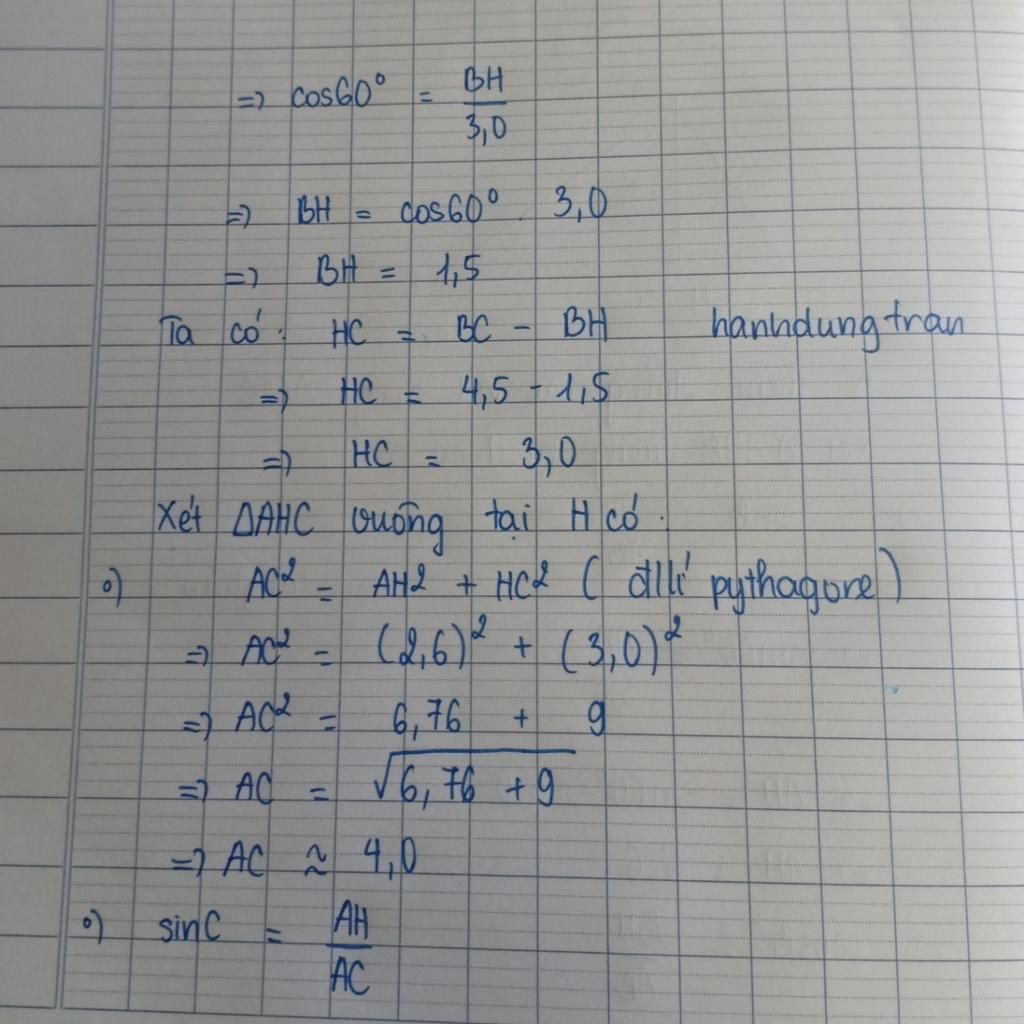 => cos60° = BH/3,0
=> BH = cos60° . 3,0
=> BH = 1,5
Ta có: HC = BC - BH hanhdungtran
=> HC = 4,5 - 1,5
=> HC = 3,0
Xét ΔAHC vuông tại H có:
°) AC² = AH² + HC² (đlí pythagore)
=> AC² = (2,6)² + (3,0)²
=> AC² = 6,76 + 9
=> AC = √(6,76 + 9)
=> AC ≈ 4,0
°) sinC = AH/AC